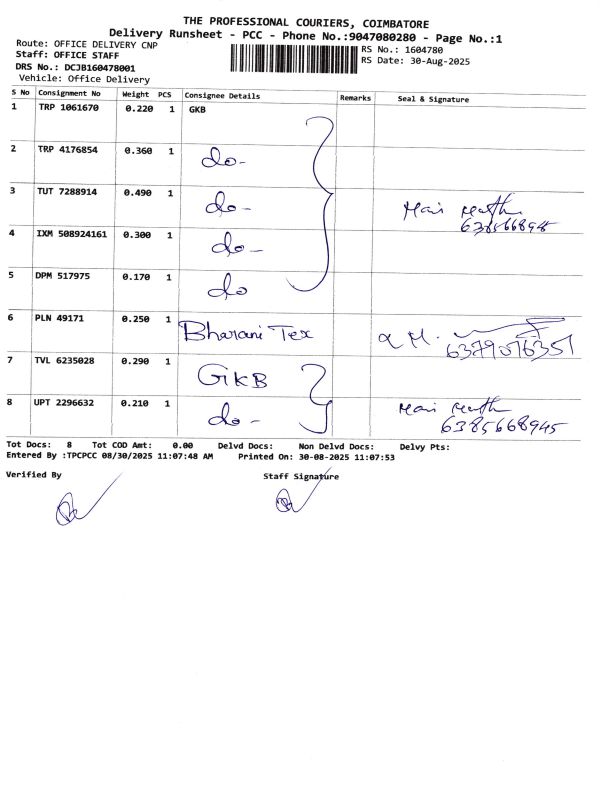 THE PROFESSIONAL COURIERS, COIMBATORE
Delivery Runsheet - PCC - Phone No.:9047080280 - Page No.:1
Route: OFFICE DELIVERY CNP
Staff: OFFICE STAFF
DRS No.: DCJB160478001
Vehicle: Office Delivery
RS No.: 1604780
RS Date: 30-Aug-2025
S No Consignment No Weight PCS Consignee Details Remarks Seal & Signature
1 TRP 1061670 0.220 1 GKB
2 TRP 4176854 0.360 1 do-
3 TUT 7288914 0.490 1 do-
4 IXM 508924161 0.300 1 do-
5 DPM 517975 0.170 1 do
6 PLN 49171 0.250 1 Bharani Tex
7 TVL 6235028 0.290 1 GKB
8 UPT 2296632 0.210 1 do- 6385668945
Tot Docs: 8 Tot COD Amt: 0.00 Delvd Docs: Non Delvd Docs: Delvy Pts:
Entered By :TPCPCC 08/30/2025 11:07:48 AM Printed On: 30-08-2025 11:07:53
Verified By Staff Signature